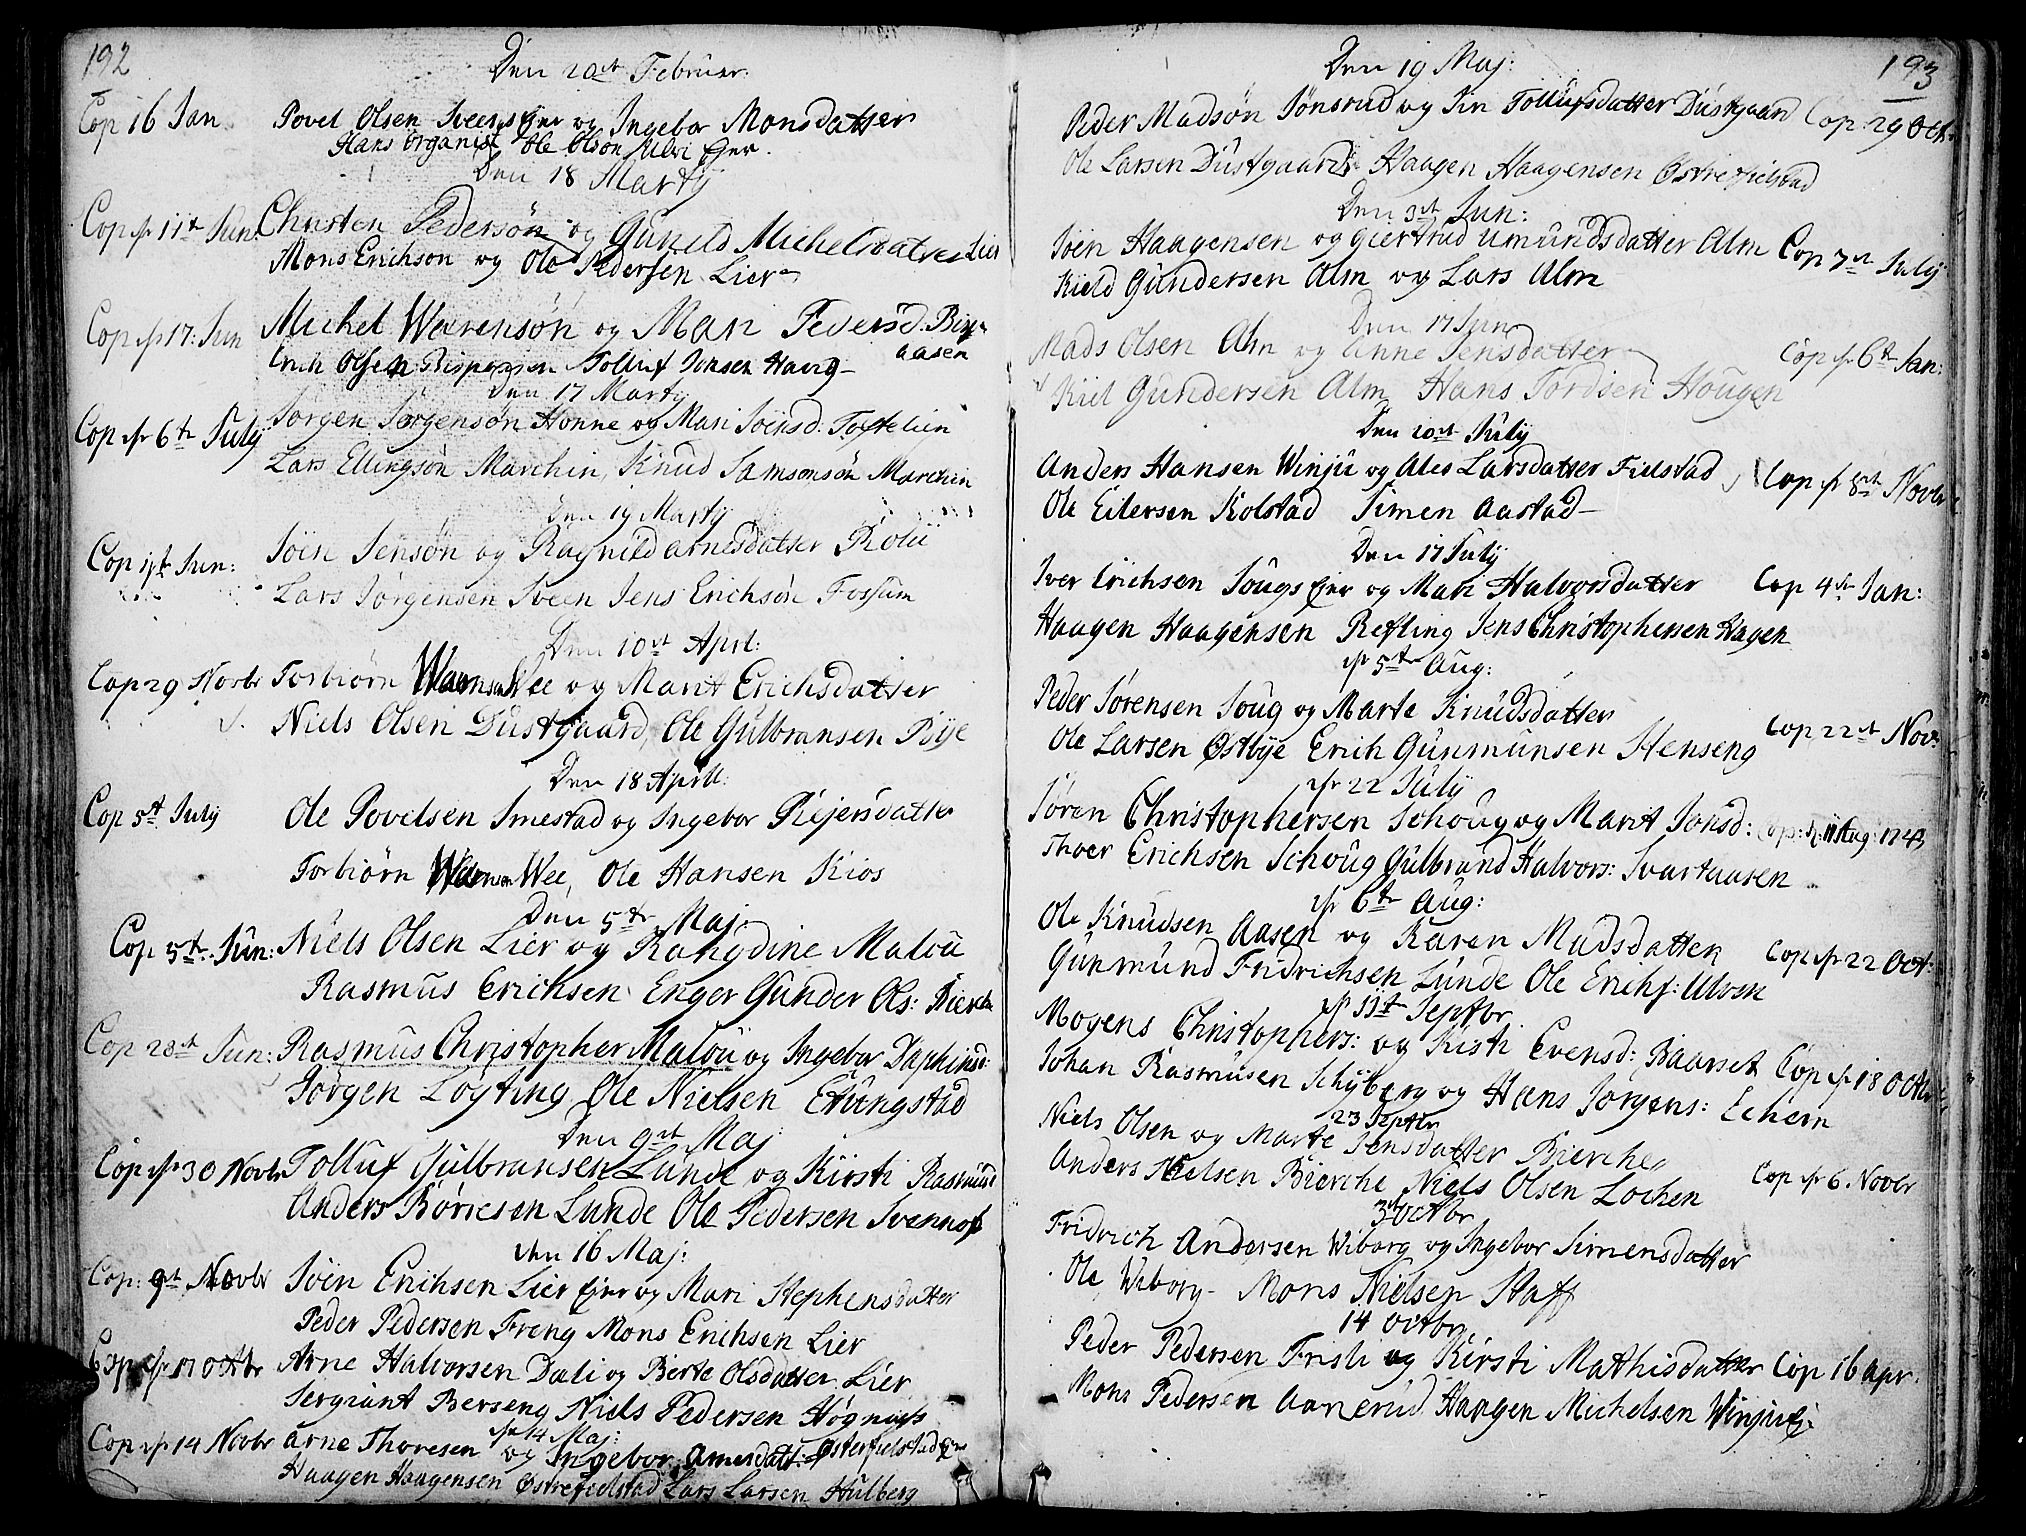 192
Den 20de Februar:
Cop 16 Jan Povel Olsen Sveens Ejer og Ingebor Monsdatter
Hans Organist Ole Olson Ejer.
Den 18 Martij
Cop d 11te Jun: Christen Pedersøn og Gunild Michelsdatter Lier
Mons Erichson og Ole Pedersen Lier
Cop d 17: Jun Michel Weerensøn og Mari Pedersd. Bisp-
Erich Olsen Bispeaasen Tolluf Jonsen Haug- aasen
Den 17 Martij
Cop d 6te July Jorgen Jørgensøn Honne og Mari Joensd: Toftelien
Lars Ellingsøn Marchin, Knud Samsonsøn Marchin
Den 19 Martij
Cop 11te Jun: Joen Jensøn og Ragnild Arnesdatter Rolii
Lars Jørgensen Sveen Jens Erichsøn Fossum
Den 10de Apl:
Cop 29 Novbr Torbiørn Wee og Marit Erichsdatter
Niels Olsen Dustgaard, Ole Gulbransen Pøye
Den 18 Aprill:
Cop 5t July Ole Povelsen Smestad og Ingebor Rejersdatter
Torbiørn Wee, Ole Hansen Kios
Den 5te Maj
Cop 5te Jun: Niels Olsen Lier og Rangdine Malou
Rasmus Erichsen Enger Gunder Ols: Bierche
Cop 28de Jun: Rasmus Christopher Malou og Ingebor Daphinsd:
Jørgen Løyting Ole Nielsen Elungstad
Den 9de Maj
Cop d 30 Novbr Tolluf Gulbransen Lunde og Kirsti Rasmusd
Anders Børiesen Lunde Ole Pedersen Svennof
den 16 Maj:
Cop: 9de Novbr Joen Erichsen Lier Ejer og Mari Stephensdatter
Peder Pedersen Freng Mons Erichsen Lier
Cop d 17 Octbr Arne Halvorsen Dali og Berte Olsdatter Lier
Sergiant Berseng Niels Pedersen
d 14 Maj:
Cop d 14 Novbr Arne Thoresen og Ingebor Arnesdatt: Østerfielstad Ejer
Haagen Haagensen Østrefielstad Lars Larsen Hulberg
193
Den 19 Maj:
Peder Madsøn Jønsrud og Siri Tollufsdatter Dustgaard Cop: 29 Oct
Ole Larsen Dustgaard Haagen Haagensen Østrefielstad
Den 3de Jun:
Joen Haagensen og Giertrud Umundsdatter Alm Cop 7de July
Kield Gundersen Alm og Lars Alm
Den 17 Jun
Mads Olsen Alm og Anne Jensdatter Cop d 6te Jan:
Kiel Gundersen Alm Hans Tordsen Hougen
Den 10de July
Anders Hansen Winju og Ales Larsdatter Fielstad Cop d 8de Novbr
Ole Eilersen Kolstad Simen Aastad
Den 17 July
Iver Erichsen Sougs Ejer og Mari Halvorsdatter Cop 4de Jan:
Haagen Haagensen Refling Jens Christophersen Hagen
d 5te Aug:
Peder Sørensen Soug og Marte Knudsdatter
Ole Larsen Østbye Erich Gunmunsen Stenseng Cop 22de Nov:
d 22 July
Søren Christophersen Schoug og Marit Jonsd: Cop: d: 11 Aug: 1743
Thoer Erichsen Schoug Gulbrand Halvors: Svartaasen
d 6te Aug:
Ole Knudsen Aasen og Karen Madsdatter
Gunmund Fridrichsen Lunde Ole Erichs: Ulven Cop d 22 Oct:
d 11te Septbr
Mogens Christophers: og Kirsti Evensd: Baarset Cop d 18 Octbr
Johan Rasmusen Schyberg og Hans Jørgens: Echern
23 Septbr
Niels Olsen og Marte Jensdatter Bierche
Anders Nielsen Bierche Niels Olsen Lochen Cop d 6 Novbr
3de Octbr
Fridrich Andersen Wiborg og Ingebor Simensdatter
Ole Wiborg- Mons Nielsen Staff
14 Octbr
Peder Pedersen Frisli og Kirsti Mathisdatter Cop 16 apr:
Mons Pedersen Aanerud Haagen Michelsen Winju Ej: